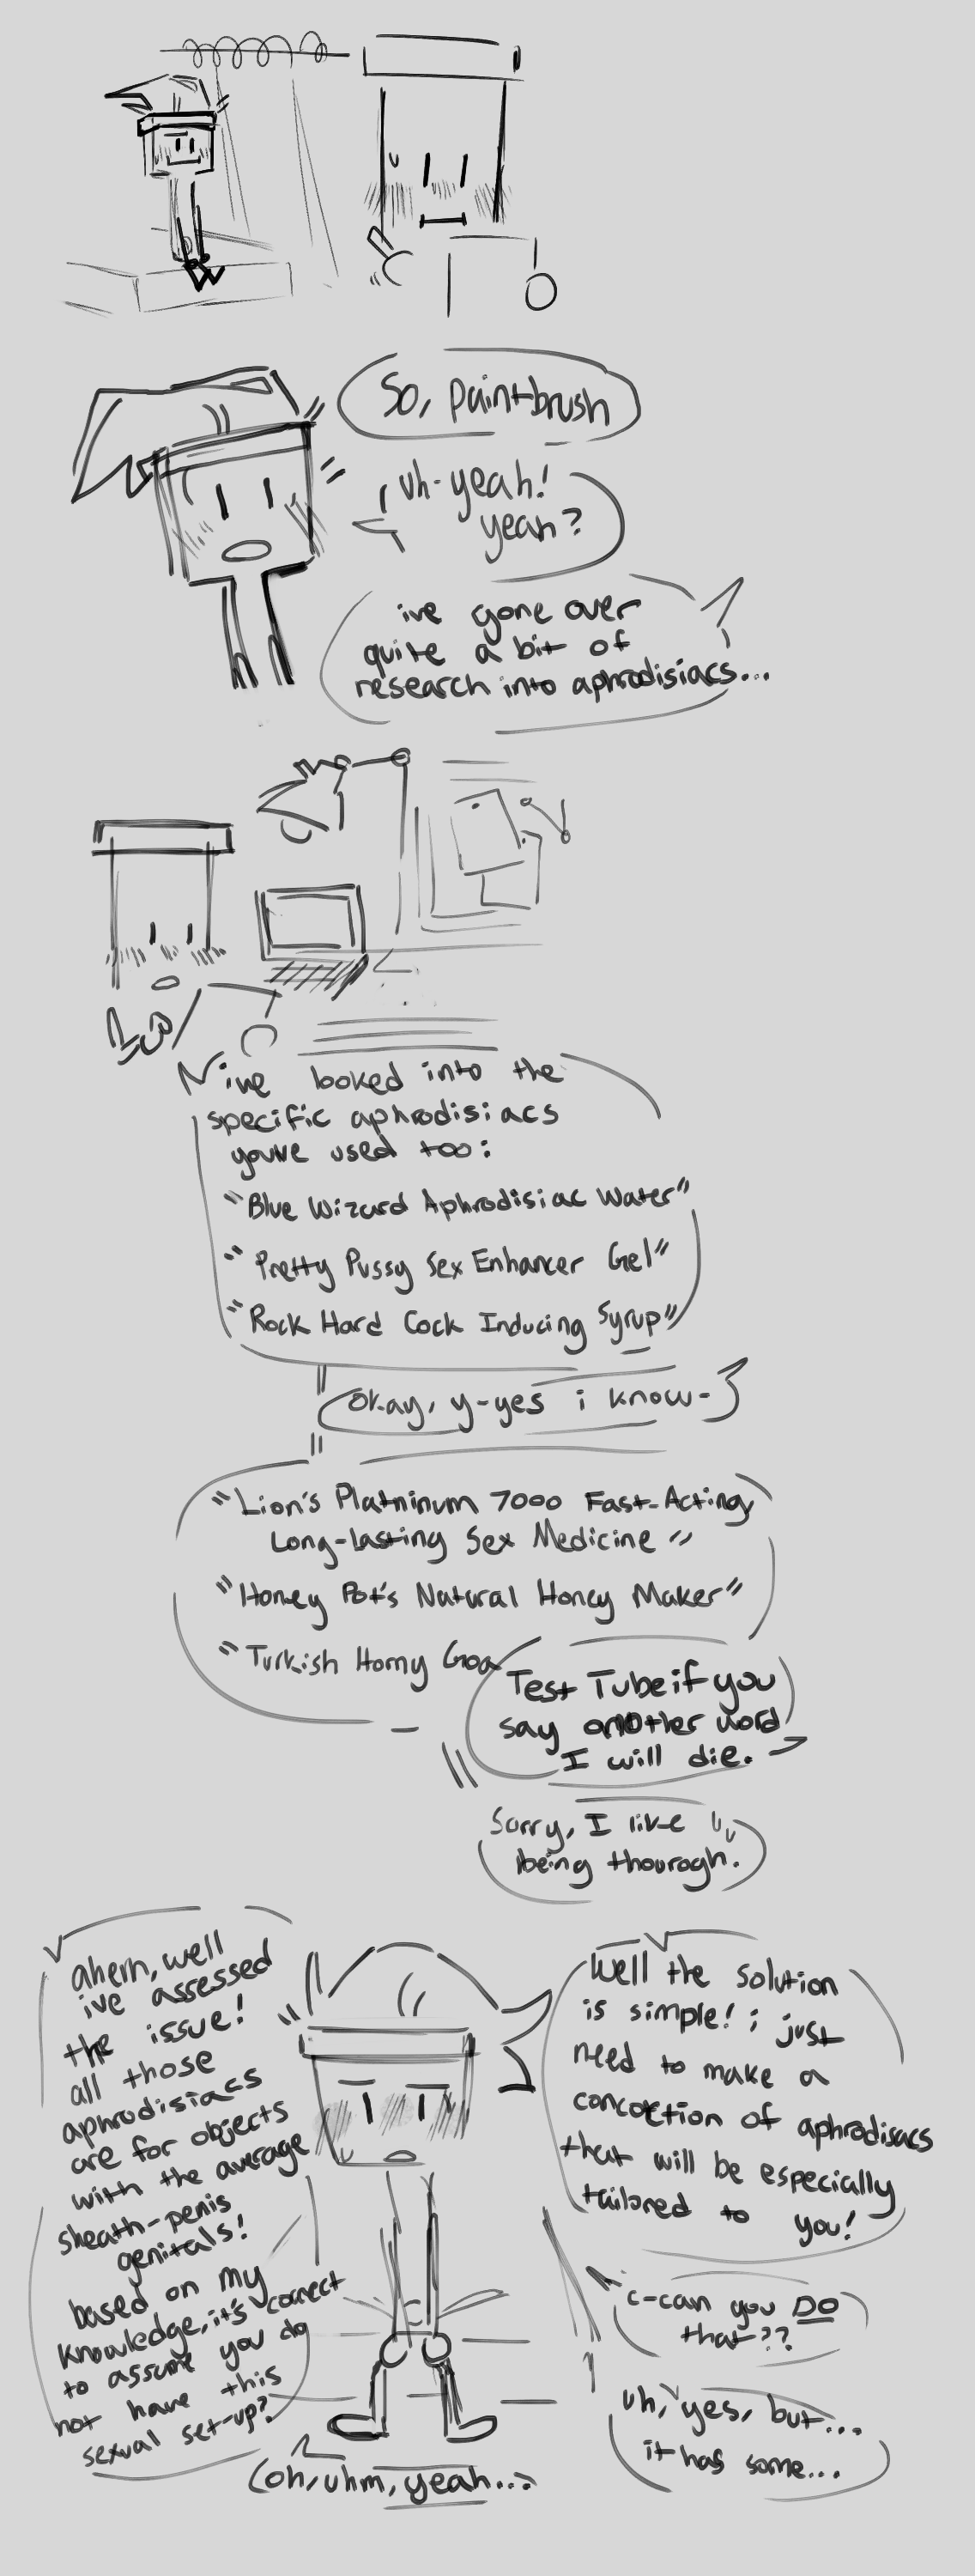 So, paintbrush
uh-yeah!
yeah?
ive gone over
quite a bit of
research into aphrodisiacs...
ive looked into the
specific aphrodisiacs
youve used too:
"Blue Wizard Aphrodisiac Water"
"Pretty Pussy Sex Enhancer Gel"
"Rock Hard Cock Inducing Syrup"
okay, y-yes i know-
"Lion's Platninum 7000 Fast-Acting
Long-lasting Sex Medicine"
"Honey Pot's Natural Honey Maker"
"Turkish Horny Goa
Test Tube if you
say another word
I will die.
Sorry, I like
being thourogh.
ahem, well
ive assessed
the issue!
all those
aphrodisiacs
are for objects
with the average
sheath-penis
genitals!
based on my
knowledge, it's correct
to assume you do
not have this
sexual set-up?
(oh, uhm, yeah...
Well the solution
is simple! i just
need to make a
concoction of aphrodisacs
that will be especially
tailored to you!
c-can you DO
that??
uh, yes, but...
it has some...